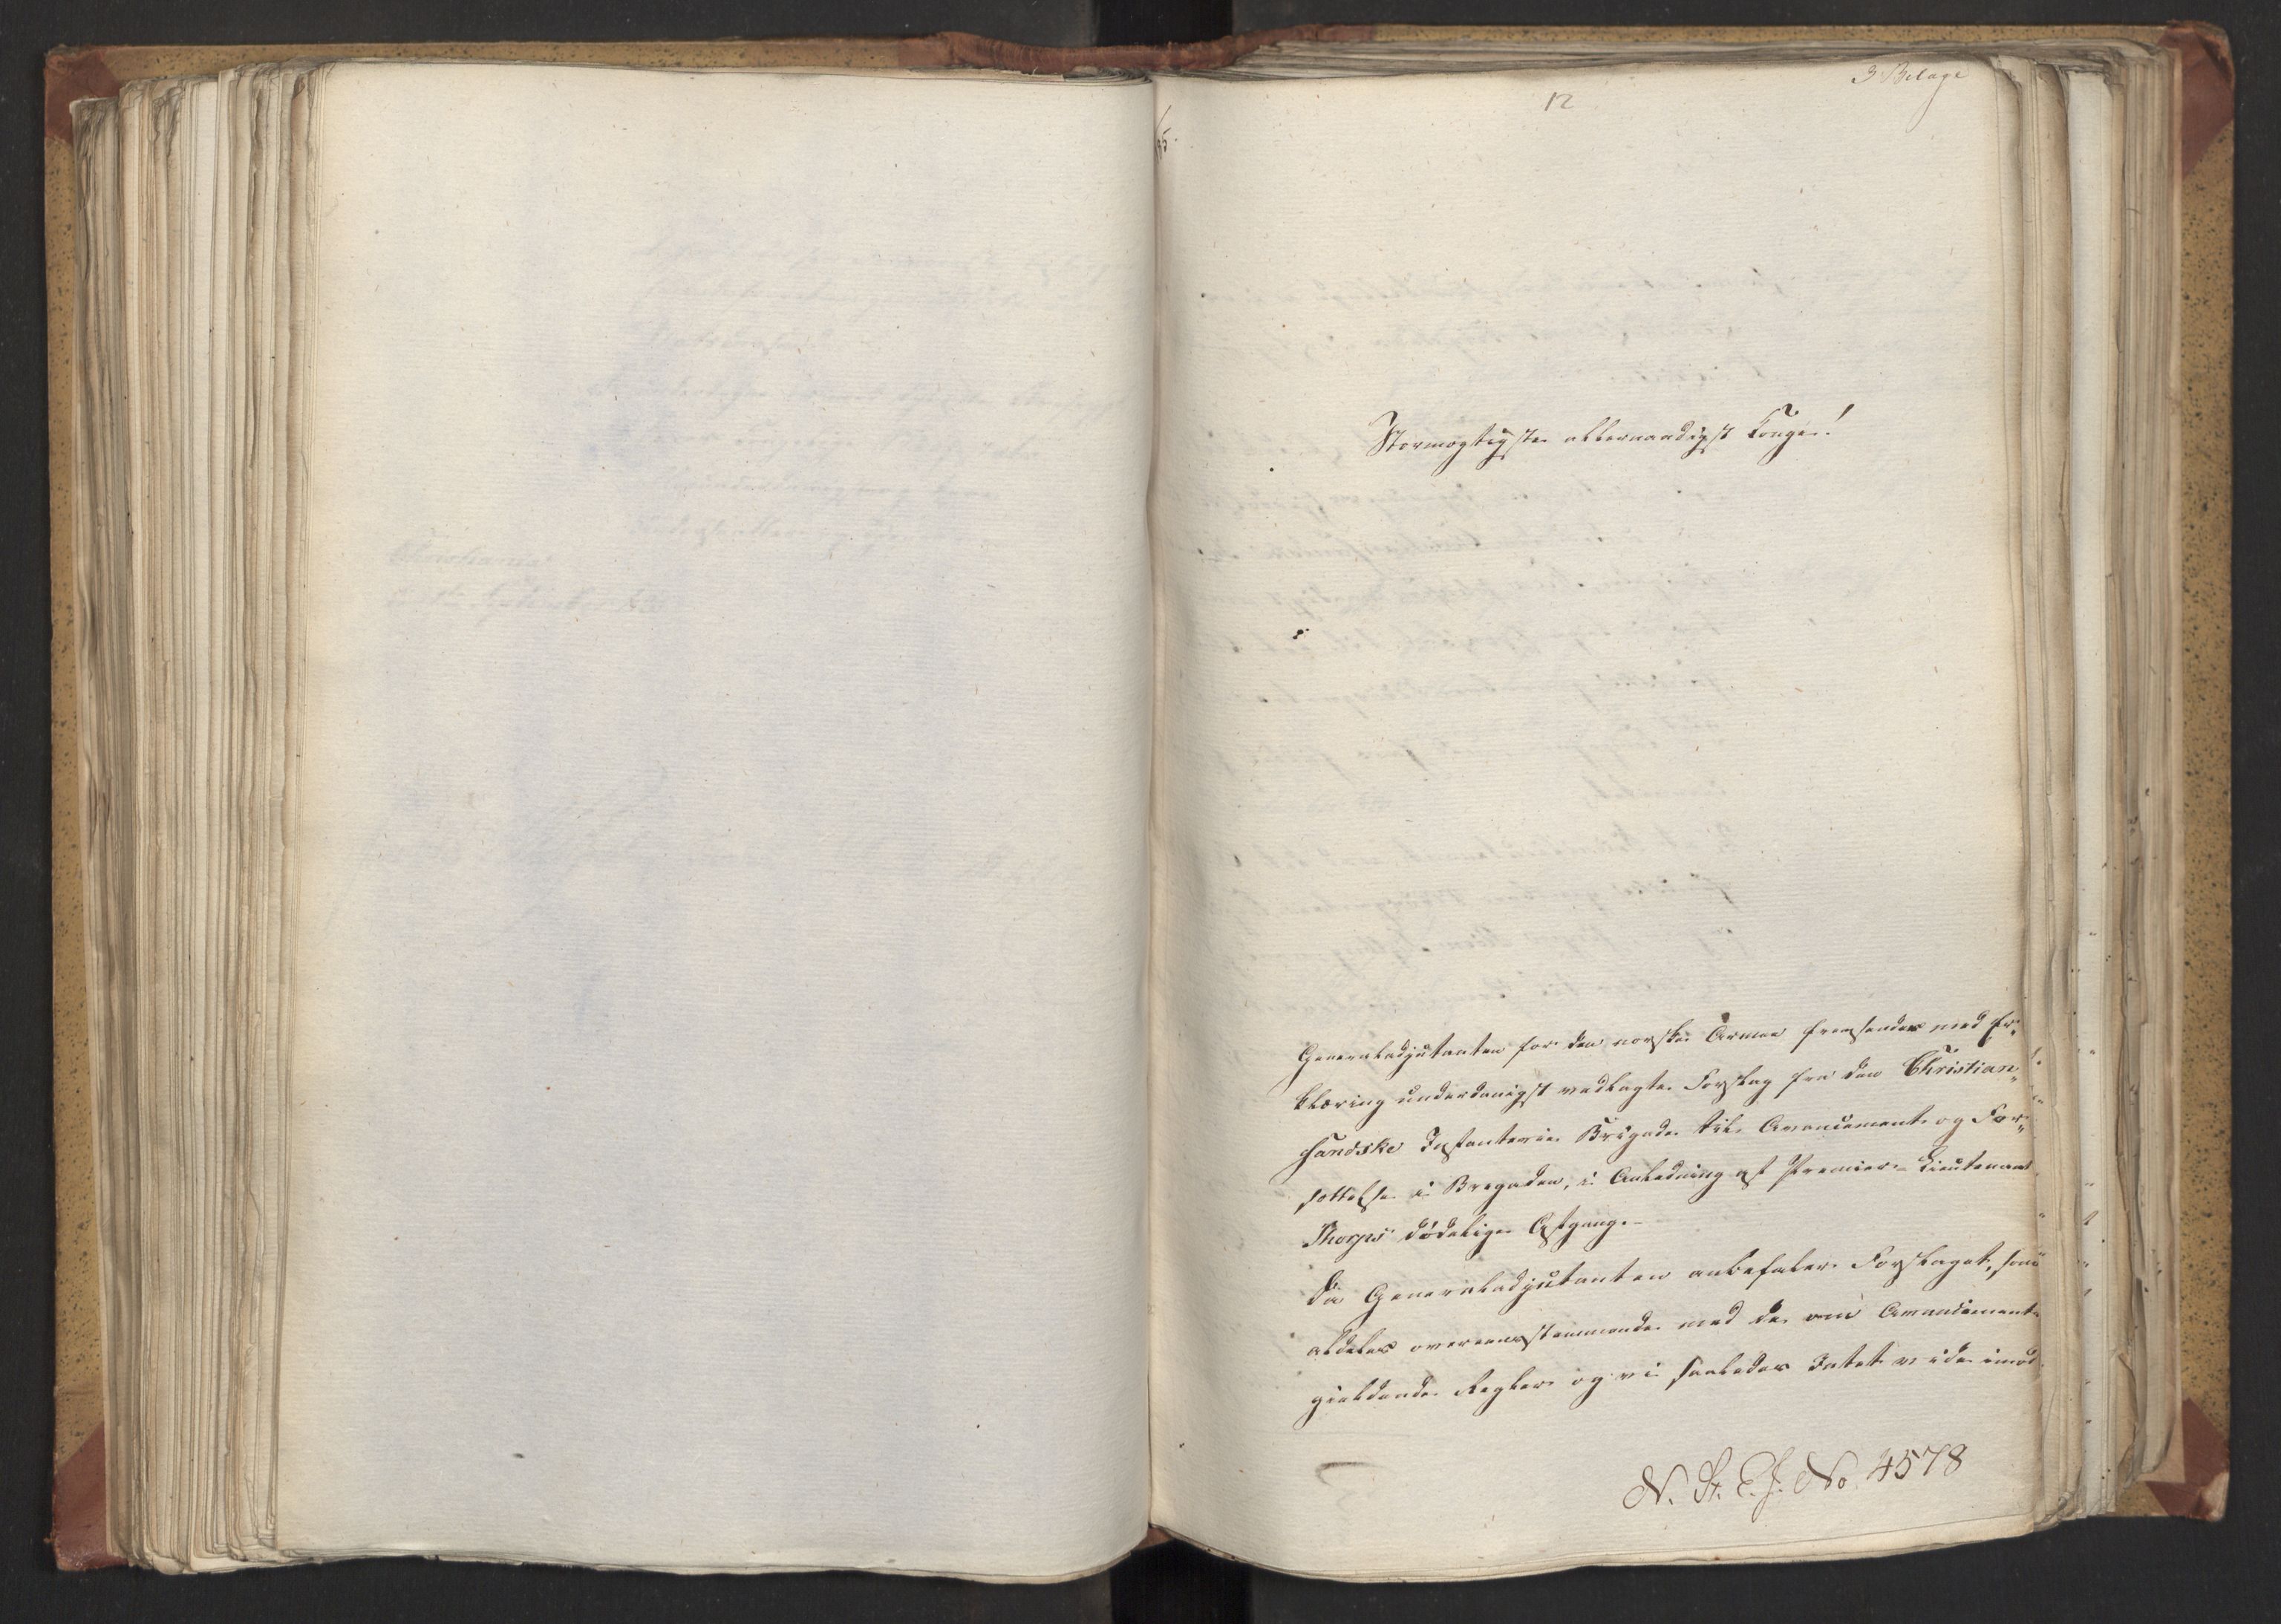 3 Belage
12
Stormægtigste allernaadigst Konge!
Generaladjutanten for den norske Armee fremsender med Er„
klæring underdanigst vedlagte Forslag fra den Christian„
sandske Infanterie Brigade til Avancement og For„
sættelse i Brigaden, i Anledning af Premier-Lieutenant
Thorps dødelige Afgang.-
Da Generaladjutanten anbefaler Forslaget, som
aldeles overeensstemmende med de om Avancement
gieldende Regler og vi saaledes Intet vide imod
N. St. E. J. No 4578